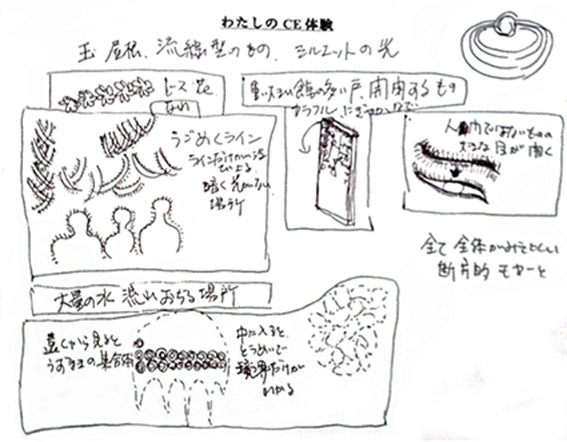 わたしのCE体験
玉 屋根、流線型のもの、シルエットの光
レース 花
なわ
重い大きい飾の多い戸、開閉するもの
カラフル にぎやか
うごめくライン
ラインだけ
暗く見えない
場所
人間ではないもの
大きな目が開く
全て 全体がみえにくい
断片的 モヤーと
大量の水 流れおちる場所
遠くから見ると
うずまきの集合体
中に入ると、
とうめいで
境界だけが
わかる